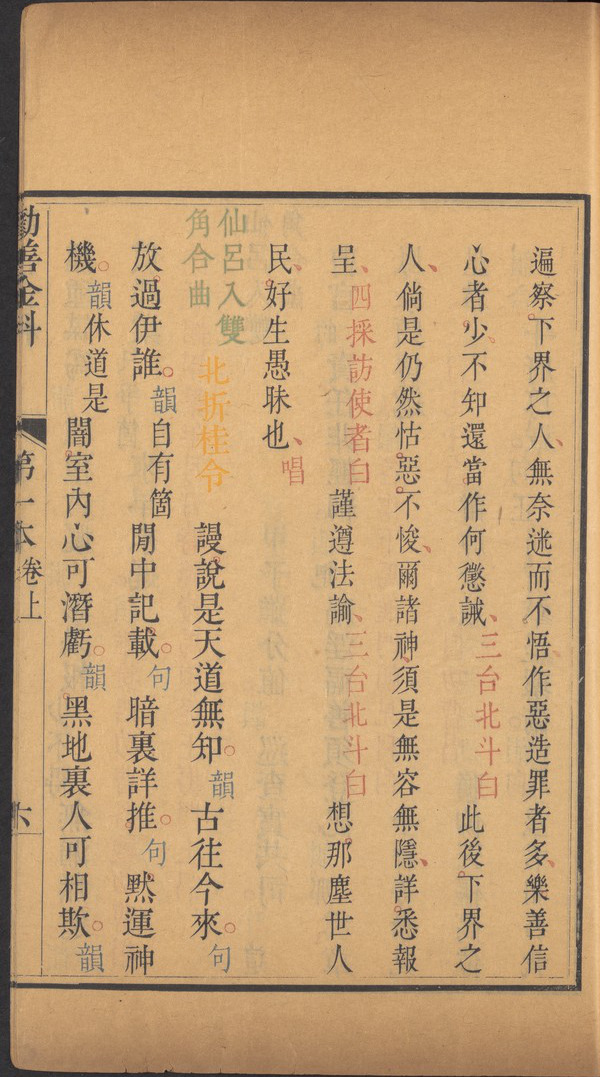 遍察下界之人無奈迷而不悟作惡造罪者多樂善信
心者少不知還當作何懲誡三台北斗白此後下界之
人倘是仍然怙惡不悛爾諸神須是無容無隱詳悉報
呈四採訪使者白謹遵法諭三台北斗白想那塵世人
民好生愚昧也唱
仙呂入雙
角合曲
北折桂令
謾說是天道無知韻古往今來句
放過伊誰韻自有箇閒中記載句暗裏詳推句黙運神
機韻休道是闇室內心可潛虧韻黑地裏人可相欺韻
勸善金科
第一本卷上
六